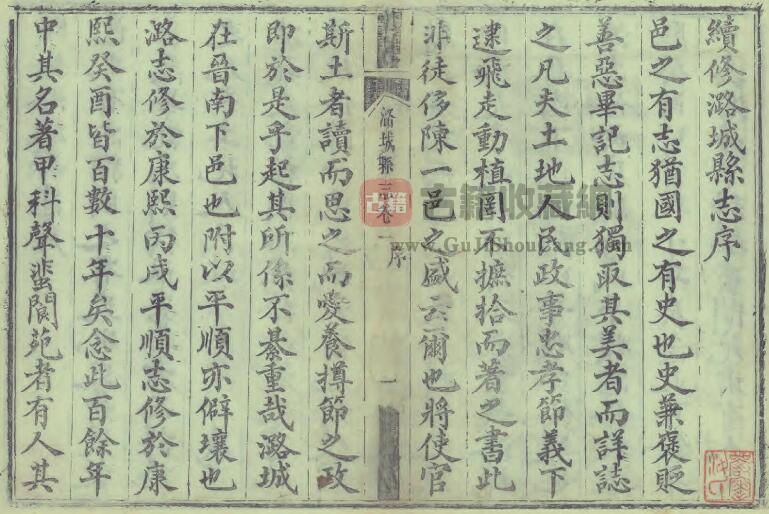 續修潞城縣志序
邑之有志猶國之有史也史兼褒貶
善惡畢記志則獨取其美者而詳誌
之凡夫土地人民政事忠孝節義下
逮飛走動植罔不摭拾而著之書此
非徒侈陳一邑之盛云爾也將使官
潞城縣志卷一序
一
斯土者讀而思之而愛養撙節之政
即於是乎起其所係不綦重哉潞城
在晉南下邑也附以平順亦僻壤也
潞志修於康熙丙戌平順志修於康
熙癸酉皆百數十年矣念此百餘年
中其名著甲科聲蜚閬苑者有人其
古籍
古籍收藏網
www.GuJiShouCang.com